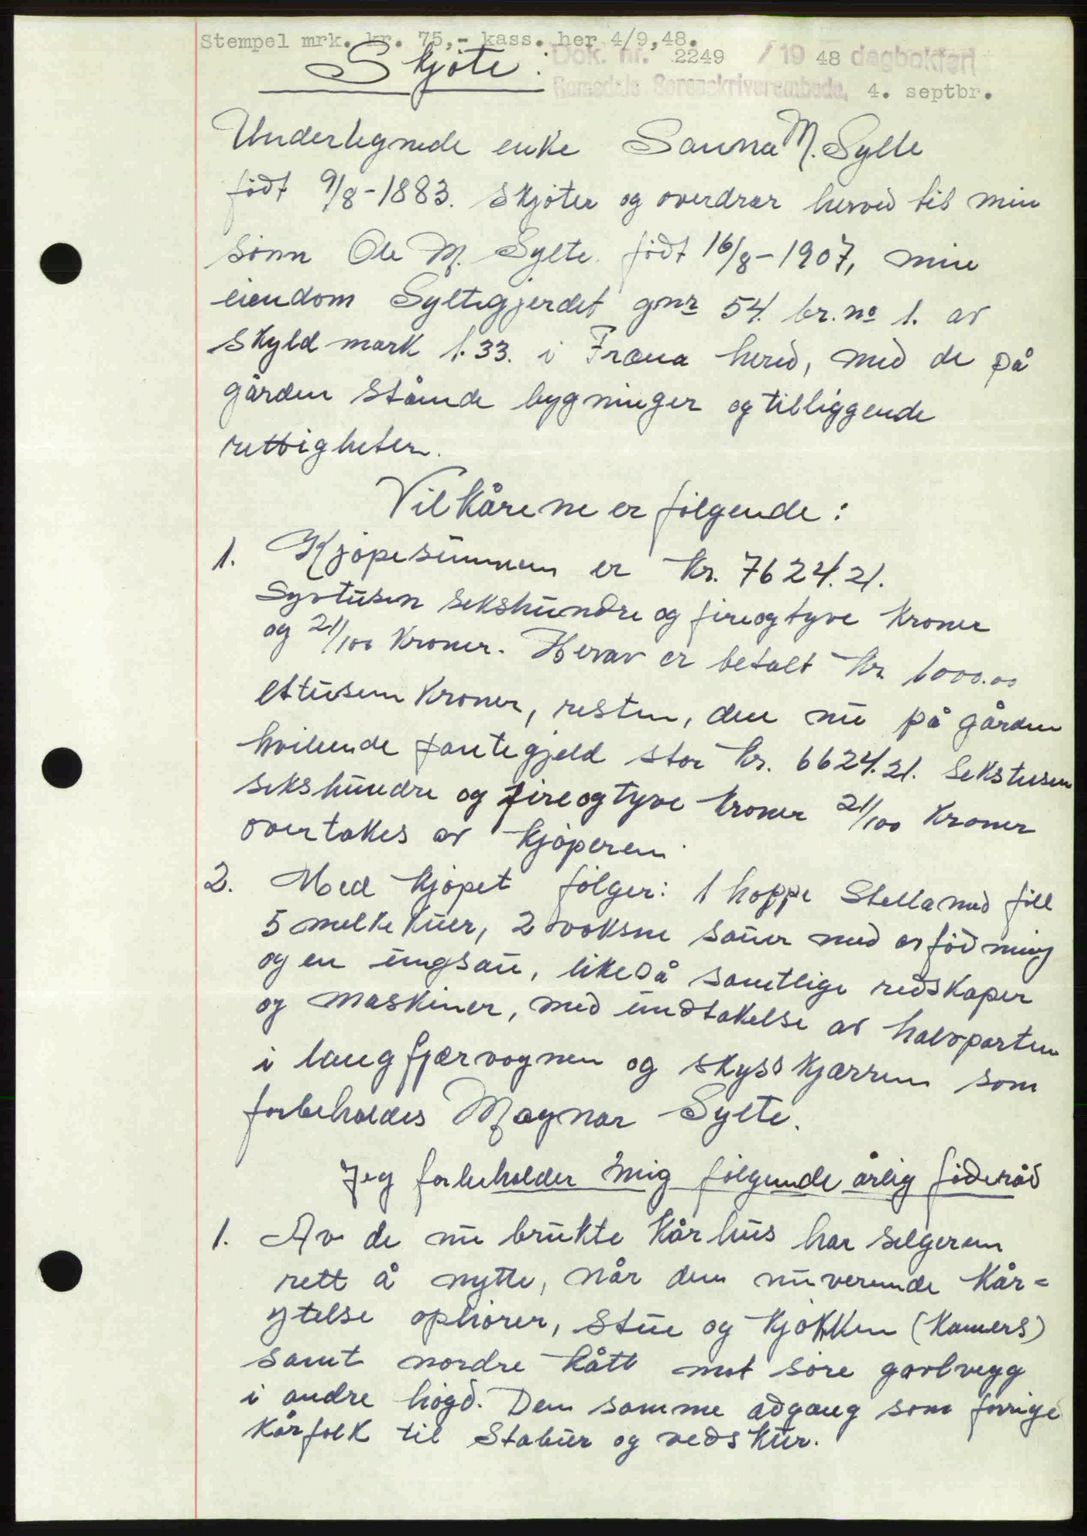 Stempel mrk. kr. 75,- kass. her 4/9,48.
Dok. nr. 2249 / 19 48 dagbokført
Romsdals Sorenskriverembede, 4. septbr.
Skjöte:
Undertegnede enke Sanna M. Sylte
födt 9/8-1883. skjöter og overdrar herved til min
sönn Ole M. Sylte. födt 16/8-1907, min
eiendom Syltegjerdet gnr 54. br. no 1. av
skyld mark 1.33. i Fræna hered, med de på
gården stående bygninger og tilliggende
rettigheter.
Vilkårene er fölgende:
1. Kjöpesummen er kr. 7624.21.
Syvtusen sekshundre og fireogtyve kroner
og 21/100 kroner. Herav er betalt kr 1000.00
ettusen kroner, resten, den nu på gården
hvilende pantegjeld stor kr. 6624.21. sekstusen
sekshundre og fireogtyve kroner 21/100 kroner
overtakes av kjöperen.
2. Med kjöpet fölger: 1 hoppe Stella med föll
5 melkekuer, 2 voksne sauer med avfödning
og en ungsau, likeså samtlige redskaper
og maskiner, med undtakelse av halvparten
i langfjærvognen og skysskjærren som
forbeholdes Magnar Sylte.
Jeg forbeholder mig fölgende årlig föderåd
1. Av de nu brukte kårhus har selgeren
rett å nytte, når den nuverende kår=
ytelse ophörer, stue og kjökken (kamers)
samt nordre kått mot söre gavlvegg
i andre högd. Den samme adgang som förrige
kårfolk til stabur og vedskur.